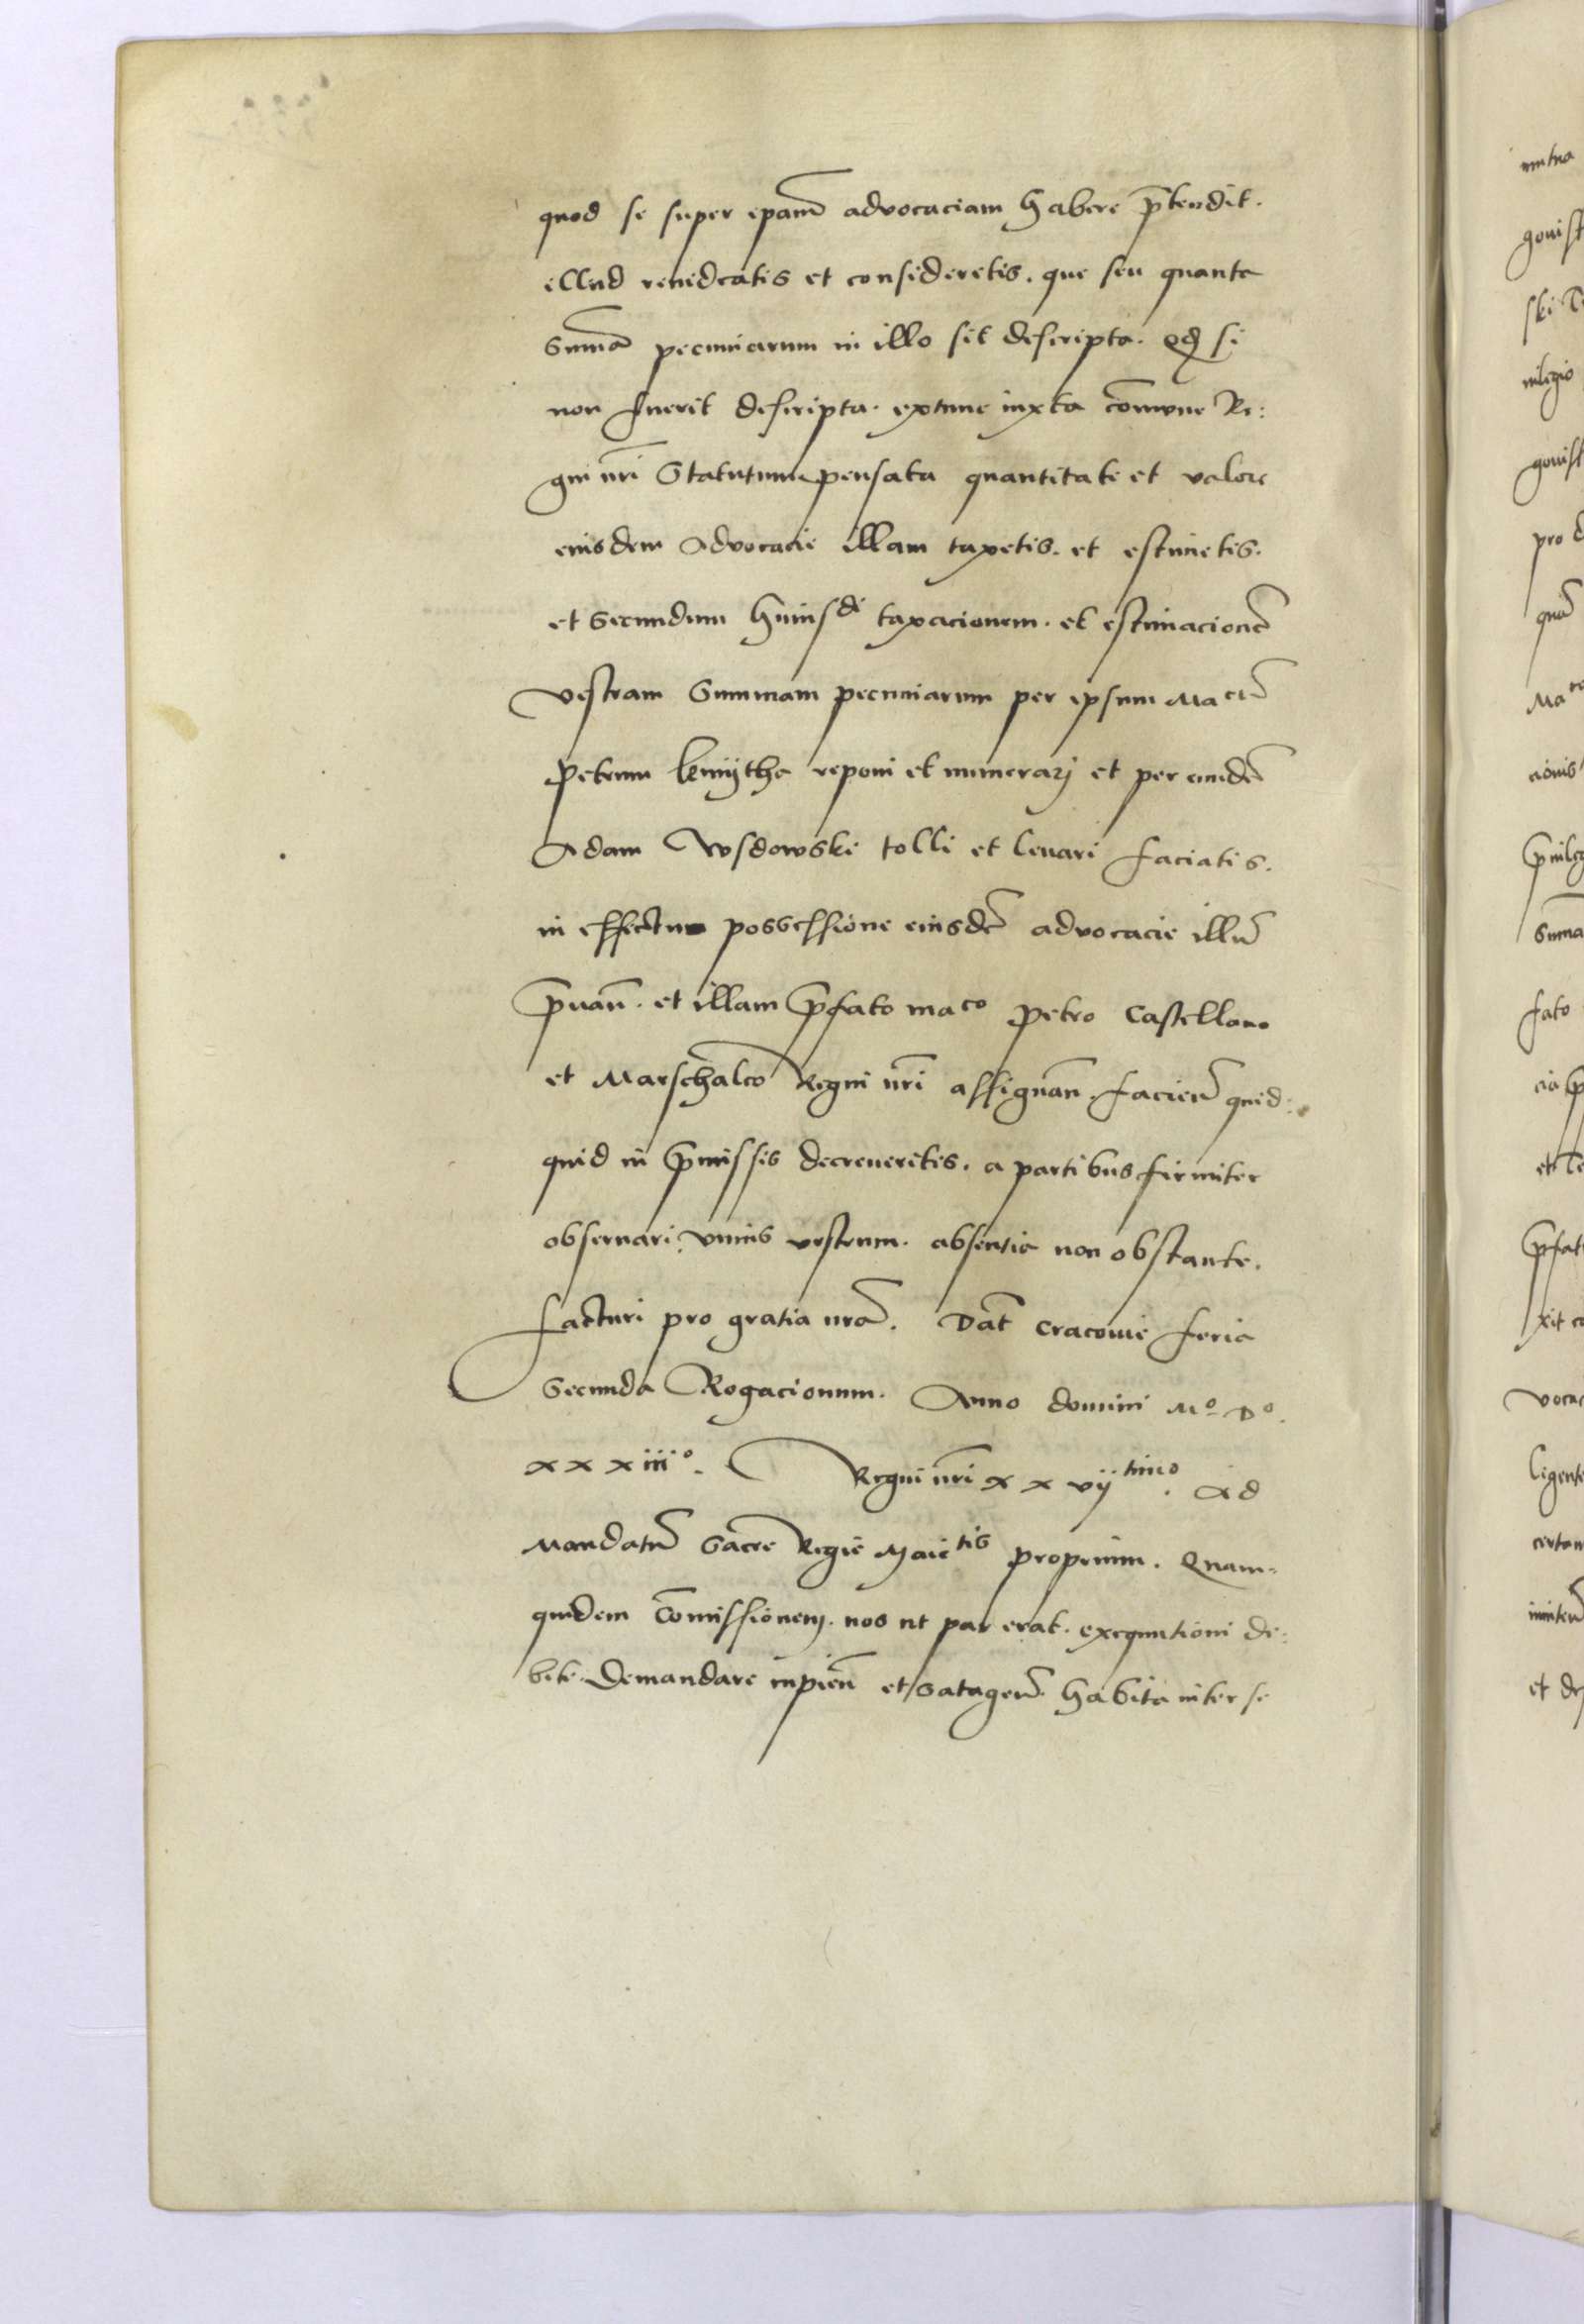 quod se super epam̄ advocaciam habere p̄tendit.
illud revideatis et consideretis. que seu quanta
Summā pecuniarum in illo sit descripta. Qđ si
non fuerit descripta. extunc iuxta com̄une Re:
gni nr̄i Statutum pensata quantitate et valore
eiusdem Advocacie illam taxetis. et estimetis.
et Secundum huiusdi taxacionem. et estimacionē
vestram Summam pecuniarum per ipsum Macū
Petrum kmythe reponi et numerarj et per eundē
Adam Wsdowski tolli et levari faciatis.
in effectu possessione eiusdē advocacie illū
p̄uan̄. et illam p̄fato maco Petro Castellano
et Marschalco Regni nr̄i assignan̄. facien̄ quid:
quid in p̄missis decreveritis. a partibus firmiter
observari. unius vestrum. absentia non obstante.
facturi pro gratia nrā. Dat̄ Cracovie feria
Secunda Rogacionum. Anno domini Mo. Do.
xxxiiio. Regni nr̄i xxvijtimo. Ad
Mandatū Sacre Regie Maietis proprium. Quam=
quidem Com̄issionem. nos ut par erat. exequutioni de:
bite. Demandare inpien̄ et Satagen̄. habita inter se
mutua
fato
et de